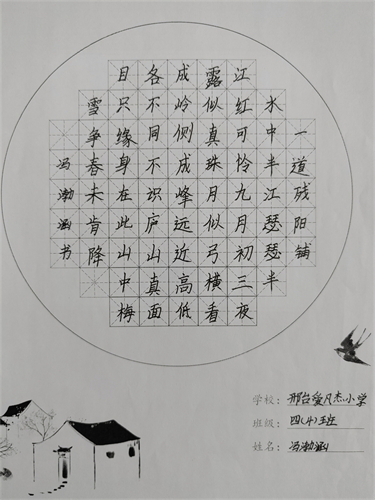 一道残阳铺
水中半江瑟瑟半
江红可怜九月初三夜
露似真珠月似弓横看
成岭侧成峰远近高低
各不同不识庐山真面
目只缘身在此山中梅
雪争春未肯降
冯渤涵书
学校：邢台爱凡杰小学
班级：四(4)班
姓名：冯渤涵